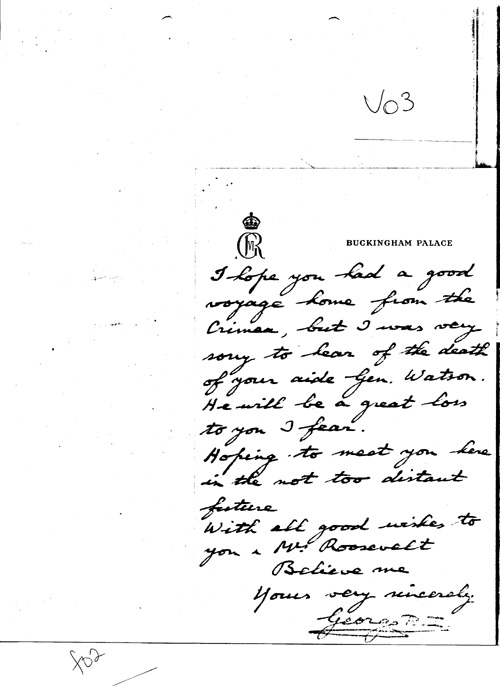 V03
BUCKINGHAM PALACE
I hope you had a good
voyage home from the
Crimea, but I was very
sorry to hear of the death
of your aide Gen. Watson.
He will be a great loss
to you I fear.
Hoping to meet you here
in the not too distant
future
With all good wishes to
you & Mrs Roosevelt
Believe me
Yours very sincerely,
George R.I.
f02